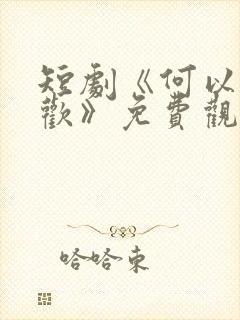 短劇《何以
歡》免費觀
哈哈東